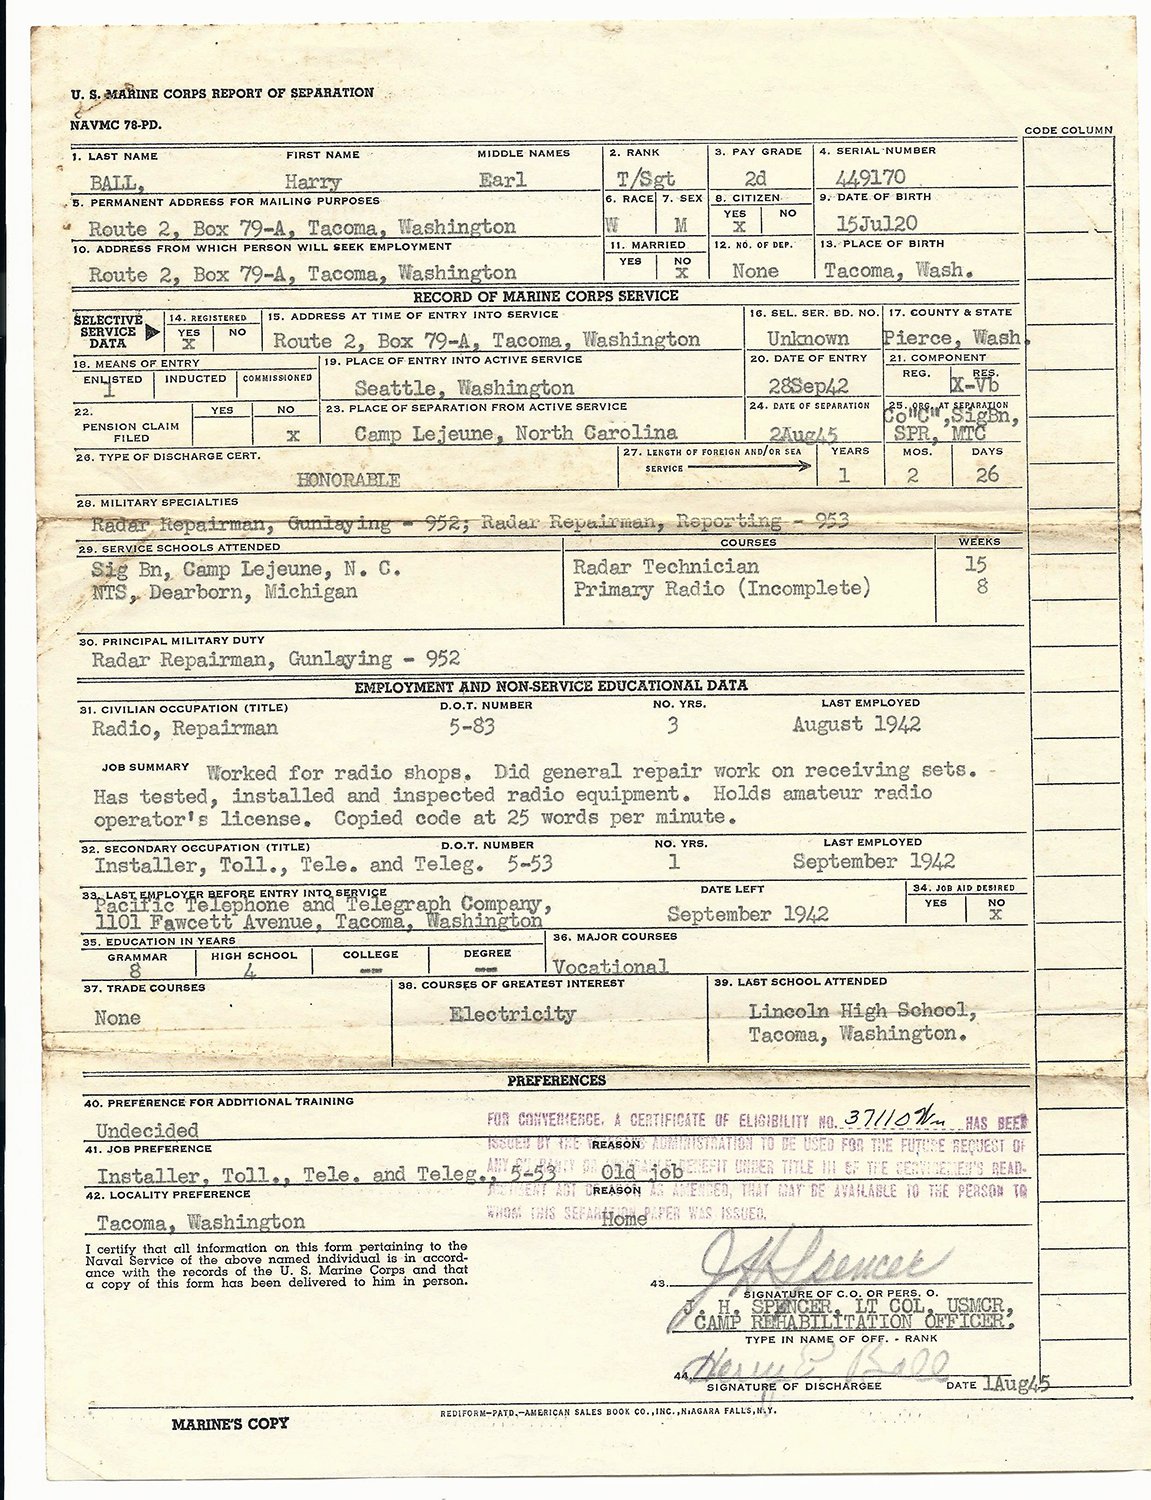 U. S. MARINE CORPS REPORT OF SEPARATION
NAVMC 78-PD.
CODE COLUMN
1. LAST NAME FIRST NAME MIDDLE NAMES 2. RANK 3. PAY GRADE 4. SERIAL NUMBER
BALL, Harry Earl T/Sgt 2d 449170
5. PERMANENT ADDRESS FOR MAILING PURPOSES 6. RACE 7. SEX 8. CITIZEN 9. DATE OF BIRTH
YES NO
Route 2, Box 79-A, Tacoma, Washington W M X 15Jul20
10. ADDRESS FROM WHICH PERSON WILL SEEK EMPLOYMENT 11. MARRIED 12. NO. OF DEP. 13. PLACE OF BIRTH
YES NO
Route 2, Box 79-A, Tacoma, Washington X None Tacoma, Wash.
RECORD OF MARINE CORPS SERVICE
SELECTIVE SERVICE DATA 14. REGISTERED 15. ADDRESS AT TIME OF ENTRY INTO SERVICE 16. SEL. SER. BD. NO. 17. COUNTY & STATE
YES NO
X Route 2, Box 79-A, Tacoma, Washington Unknown Pierce, Wash.
18. MEANS OF ENTRY 19. PLACE OF ENTRY INTO ACTIVE SERVICE 20. DATE OF ENTRY 21. COMPONENT
ENLISTED INDUCTED COMMISSIONED REG. RES.
1 Seattle, Washington 28Sep42 X-Vb
22. YES NO 23. PLACE OF SEPARATION FROM ACTIVE SERVICE 24. DATE OF SEPARATION 25. ORG. AT SEPARATION
PENSION CLAIM FILED X Camp Lejeune, North Carolina 2Aug45 Co"C",SigBn,
SPR, MTC
26. TYPE OF DISCHARGE CERT. 27. LENGTH OF FOREIGN AND/OR SEA SERVICE YEARS MOS. DAYS
HONORABLE 1 2 26
28. MILITARY SPECIALTIES
Radar Repairman, Gunlaying - 952; Radar Repairman, Reporting - 953
29. SERVICE SCHOOLS ATTENDED COURSES WEEKS
Sig Bn, Camp Lejeune, N. C. Radar Technician 15
NTS, Dearborn, Michigan Primary Radio (Incomplete) 8
30. PRINCIPAL MILITARY DUTY
Radar Repairman, Gunlaying - 952
EMPLOYMENT AND NON-SERVICE EDUCATIONAL DATA
31. CIVILIAN OCCUPATION (TITLE) D.O.T. NUMBER NO. YRS. LAST EMPLOYED
Radio, Repairman 5-83 3 August 1942
JOB SUMMARY Worked for radio shops. Did general repair work on receiving sets. -
Has tested, installed and inspected radio equipment. Holds amateur radio
operator's license. Copied code at 25 words per minute.
32. SECONDARY OCCUPATION (TITLE) D.O.T. NUMBER NO. YRS. LAST EMPLOYED
Installer, Toll., Tele. and Teleg. 5-53 1 September 1942
33. LAST EMPLOYER BEFORE ENTRY INTO SERVICE DATE LEFT 34. JOB AID DESIRED
YES NO
Pacific Telephone and Telegraph Company,
1101 Fawcett Avenue, Tacoma, Washington September 1942 X
35. EDUCATION IN YEARS 36. MAJOR COURSES
GRAMMAR HIGH SCHOOL COLLEGE DEGREE
8 4 -- -- Vocational
37. TRADE COURSES 38. COURSES OF GREATEST INTEREST 39. LAST SCHOOL ATTENDED
None Electricity Lincoln High School,
Tacoma, Washington.
PREFERENCES
40. PREFERENCE FOR ADDITIONAL TRAINING
Undecided
FOR CONVENIENCE, A CERTIFICATE OF ELIGIBILITY NO. 37110 HAS BEEN
ISSUED BY THE ADMINISTRATION TO BE USED FOR THE FUTURE REQUEST OF
41. JOB PREFERENCE REASON
ANY BENEFIT UNDER TITLE III OF THE SERVICEMEN'S READ-
Installer, Toll., Tele. and Teleg., 5-53 Old job
JUSTMENT ACT AS AMENDED, THAT MAY BE AVAILABLE TO THE PERSON TO
42. LOCALITY PREFERENCE REASON
WHOM THIS SEPARATION PAPER WAS ISSUED.
Tacoma, Washington Home
I certify that all information on this form pertaining to the
Naval Service of the above named individual is in accord-
ance with the records of the U. S. Marine Corps and that
a copy of this form has been delivered to him in person.
43. J H Spencer
SIGNATURE OF C.O. OR PERS. O.
J. H. SPENCER, LT COL, USMCR,
CAMP REHABILITATION OFFICER.
TYPE IN NAME OF OFF. - RANK
44. Harry E. Ball
SIGNATURE OF DISCHARGEE DATE 1Aug45
REDIFORM-PATD.-AMERICAN SALES BOOK CO., INC., NIAGARA FALLS, N.Y.
MARINE'S COPY